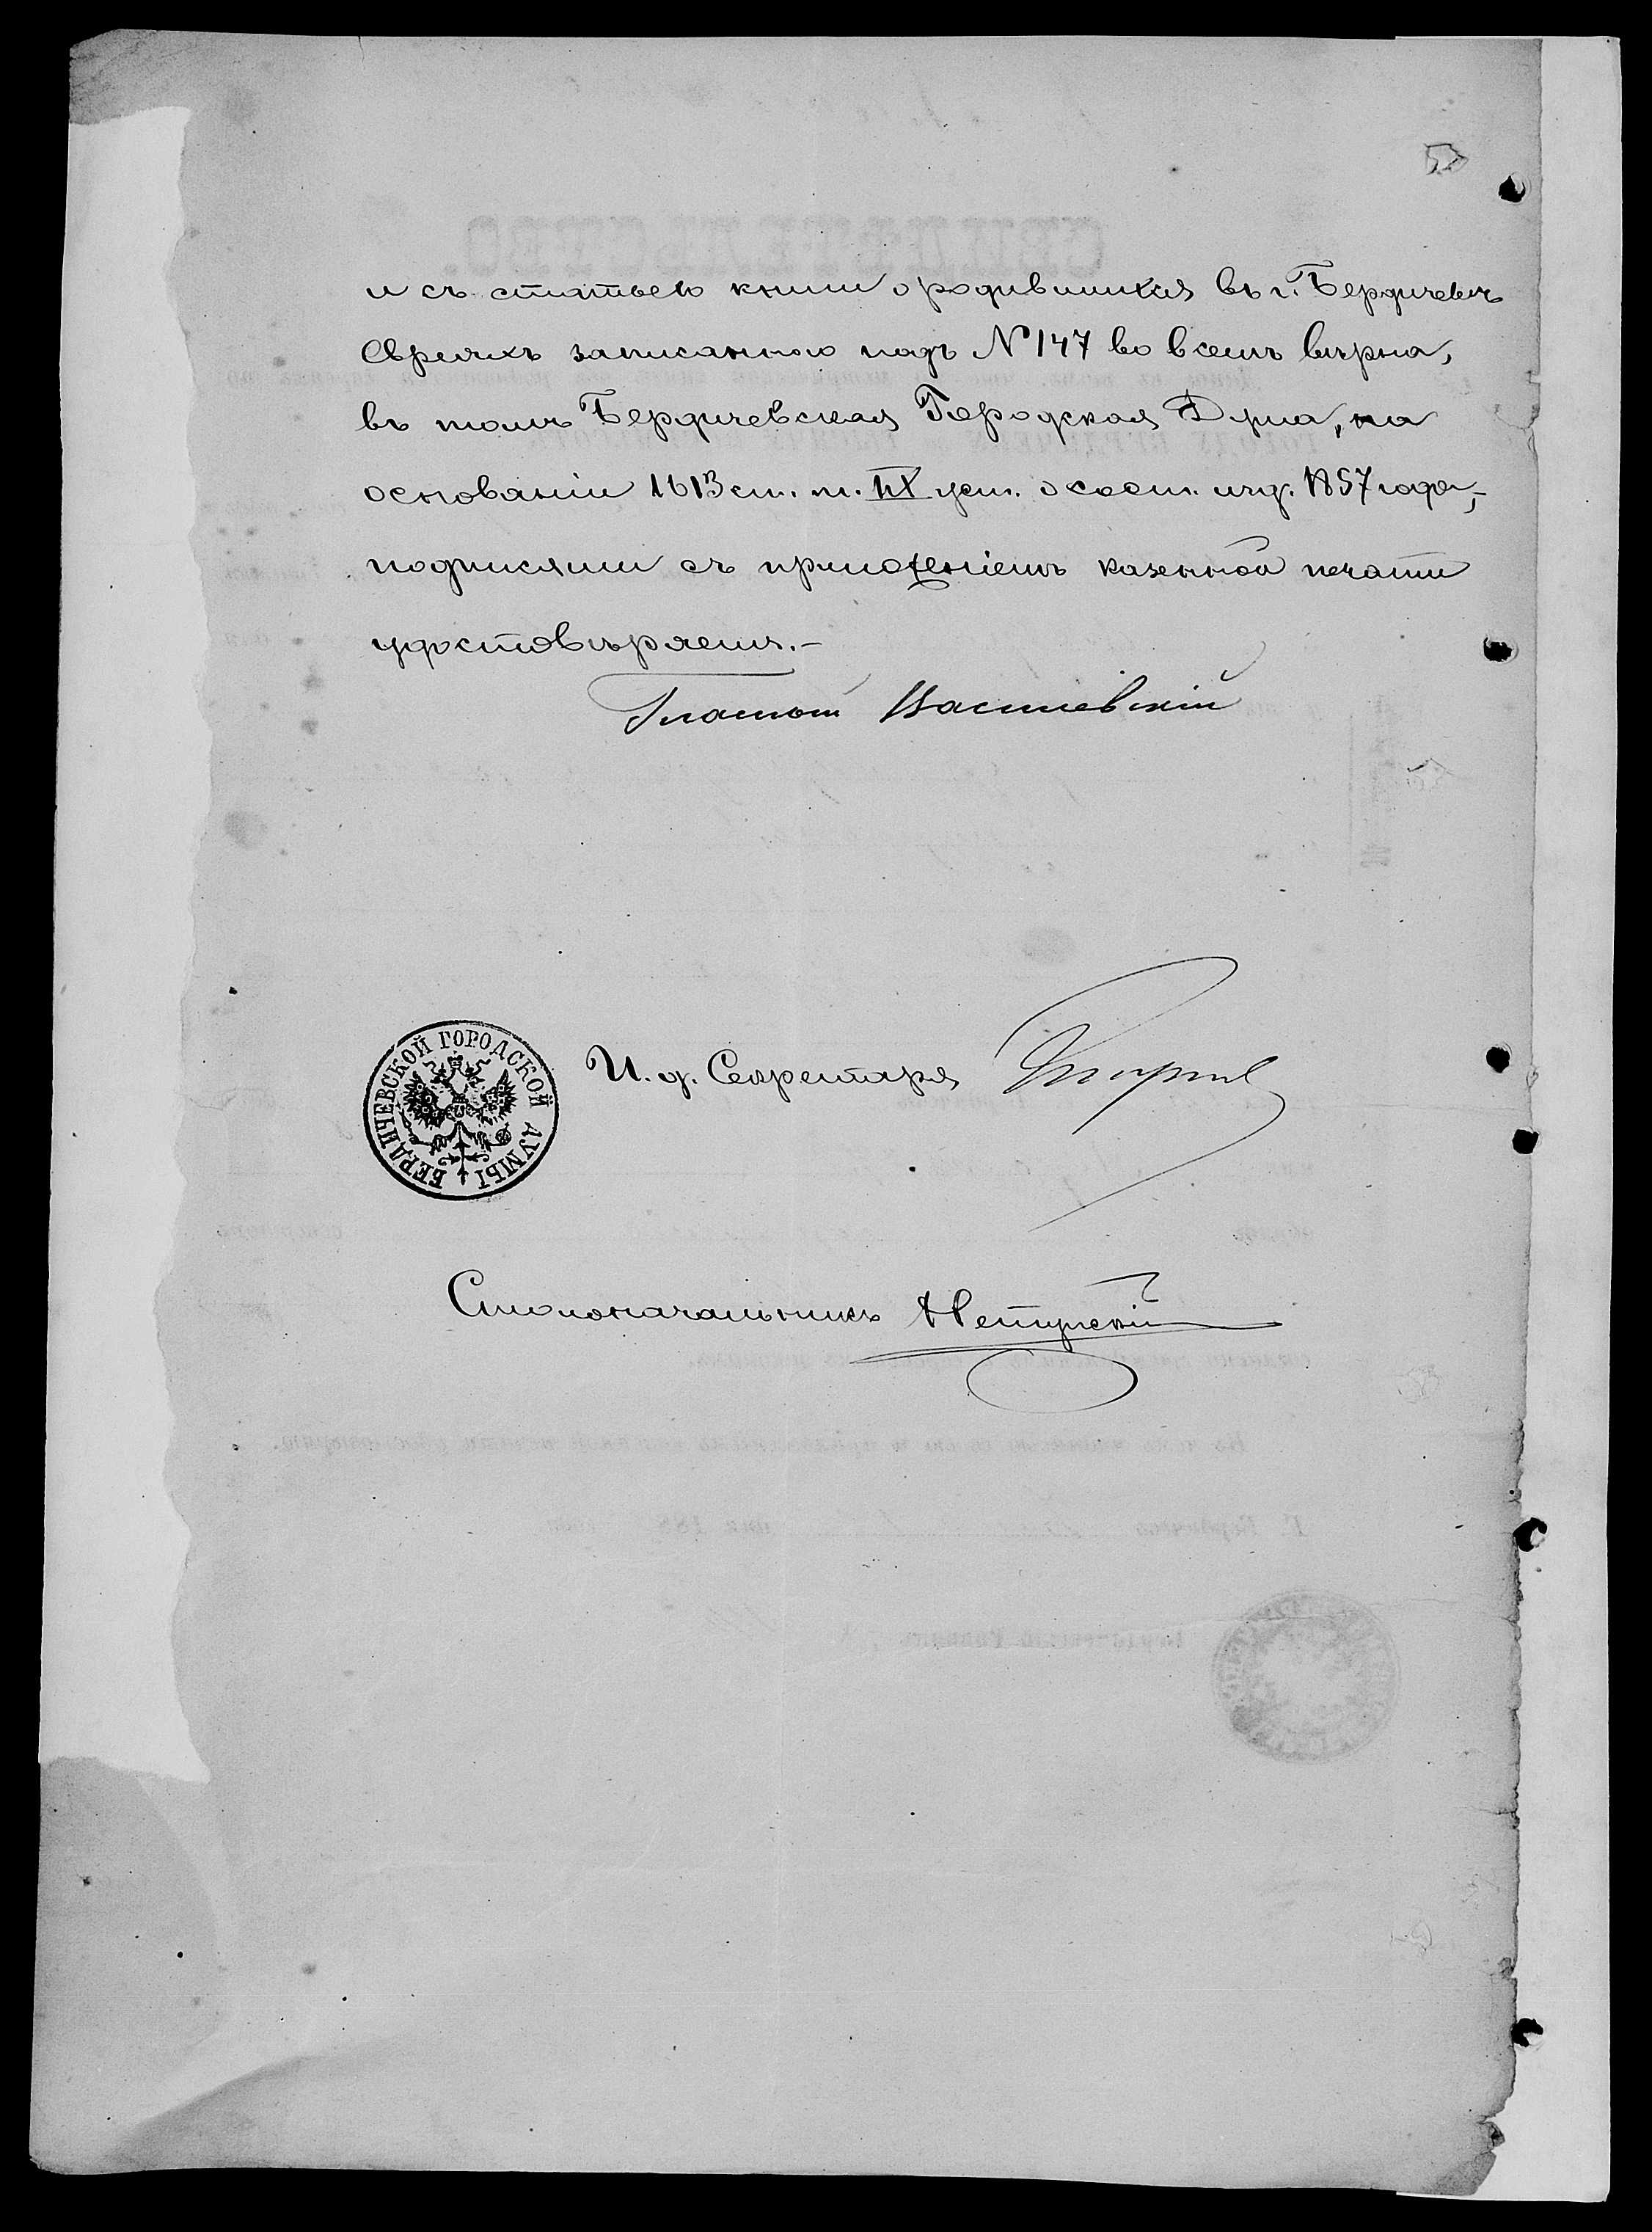 и съ статьею книги о родившихся въ г. Бердичевѣ
Евреяхъ записанною подъ № 147 во всемъ вѣрна,
въ томъ Бердичевская Городская Дума, на
основаніи 1613 ст. т. IX уст. о сост. изд. 1857 года,-
подписями съ приложеніемъ казенной печати
удостовѣряетъ.-
Гласный Василевскій
БЕРДИЧЕВСКОЙ ГОРОДСКОЙ ДУМЫ
И. д. Секретаря
Столоначальникъ